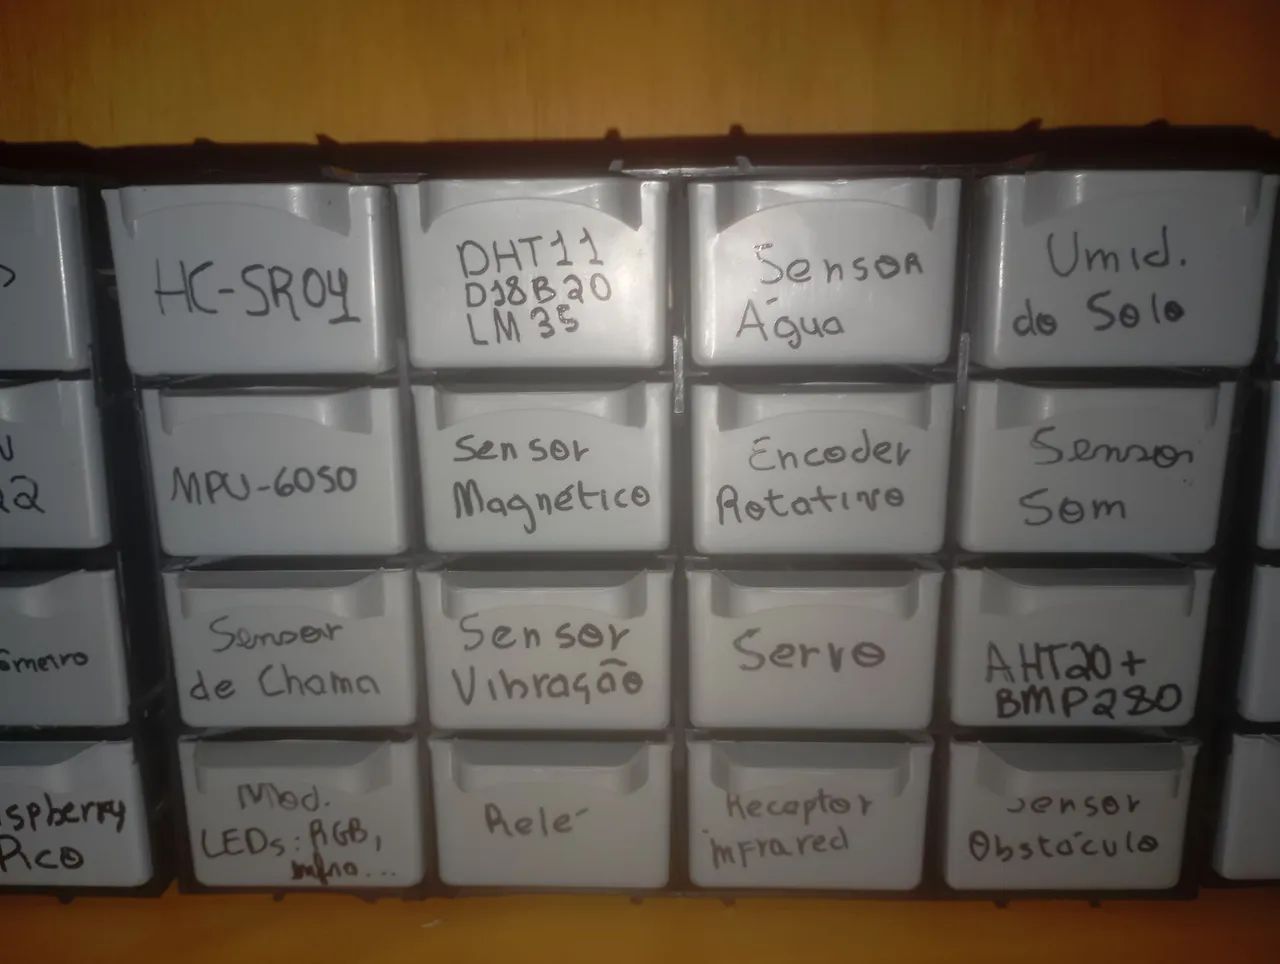 HC-SR04
DHT11
D18B20
LM35
Sensor
Água
Umid.
do Solo
MPU-6050
Sensor
Magnético
Encoder
Rotativo
Sensor
Som
Sensor
de Chama
Sensor
Vibração
Servo
AHT20+
BMP280
spberry
Pico
Mod.
LEDs: RGB,
infra...
Relé
Receptor
infrared
Sensor
Obstáculo